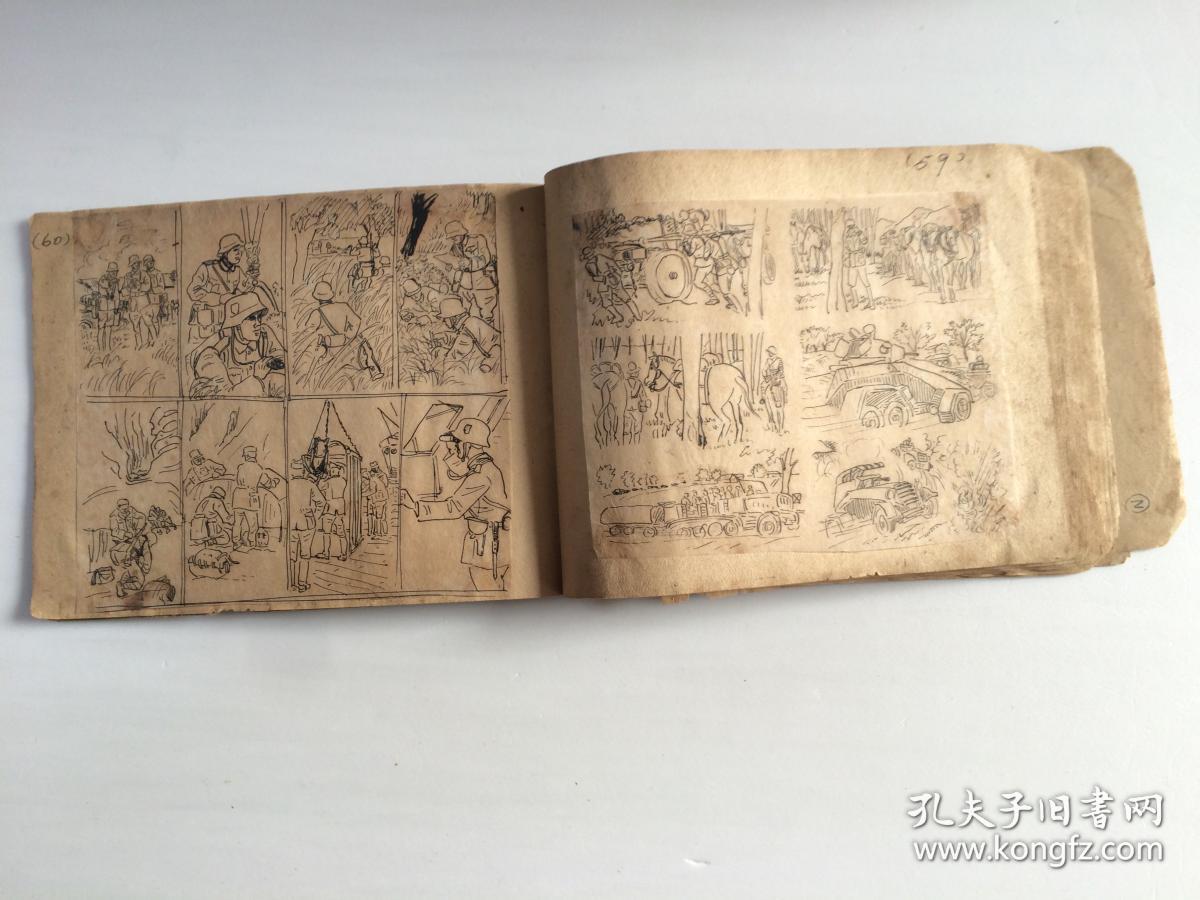 (60)
(59)
②
孔夫子旧书网
www.kongfz.com